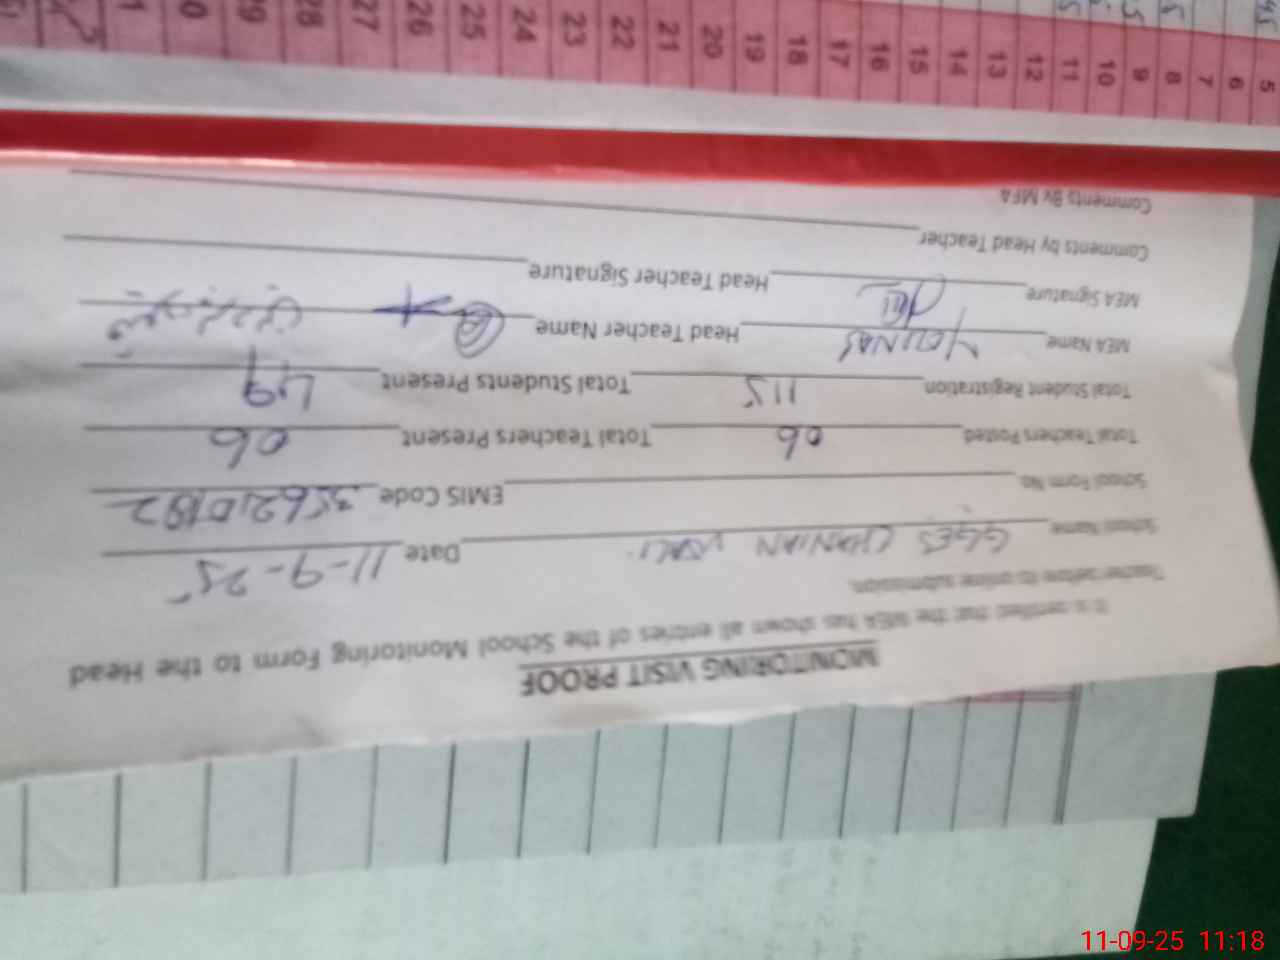 MONITORING VISIT PROOF
It is certified that the MEA has shown all entries of the School Monitoring Form to the Head
Teacher before its online submission.
School Name GGES CHANIAN WALI Date 11-9-25
School Form No. EMIS Code 35620182
Total Teachers Posted 06 Total Teachers Present 06
Total Student Registration 115 Total Students Present 49
MEA Name YOUNAS Head Teacher Name
MEA Signature Head Teacher Signature
Comments by Head Teacher
Comments By MEA
5 6 7 8 9 10 11 12 13 14 15 16 17 18 19 20 21 22 23 24 25 26 27 28
11-09-25 11:18